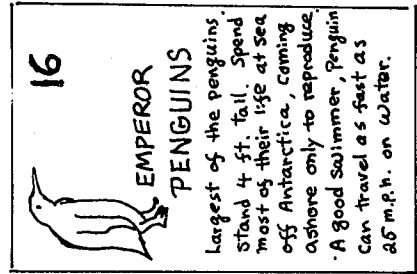 16
EMPEROR
PENGUINS
Largest of the penguins.
Stand 4 ft. tall. Spend
most of their life at sea
off Antarctica, coming
ashore only to reproduce.
A good swimmer, Penguin
can travel as fast as
25 m.p.h. on water.